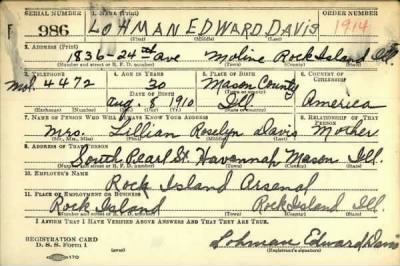 SERIAL NUMBER 1. NAME (Print) ORDER NUMBER
F 986 LOHMAN EDWARD DAVIS 1914
(First) (Middle) (Last)
2. ADDRESS (Print)
1836-24th Ave Moline Rock Island Ill.
(Number and street or R. F. D. number) (Town) (County) (State)
3. TELEPHONE 4. AGE IN YEARS 5. PLACE OF BIRTH 6. COUNTRY OF CITIZENSHIP
Mol. 4472 30 Mason County
DATE OF BIRTH (Town or county)
Aug. 8 1910 Ill America
(Exchange) (No.) (Mo.) (Day) (Yr.) (State or country)
7. NAME OF PERSON WHO WILL ALWAYS KNOW YOUR ADDRESS 8. RELATIONSHIP OF THAT PERSON
Mrs. Lillian Roselyn Davis Mother
(Mr., Mrs., Miss) (First) (Middle) (Last)
9. ADDRESS OF THAT PERSON
South Pearl St. Havannah Mason Ill.
(Number and street or R. F. D. number) (Town) (County) (State)
10. EMPLOYER'S NAME
Rock Island Arsenal
11. PLACE OF EMPLOYMENT OR BUSINESS
Rock Island Rock Island Ill
(Number and street or R. F. D. number) (Town) (County) (State)
I AFFIRM THAT I HAVE VERIFIED ABOVE ANSWERS AND THAT THEY ARE TRUE.
REGISTRATION CARD
D. S. S. Form 1 Lohman Edward Davis
(Registrant's signature)